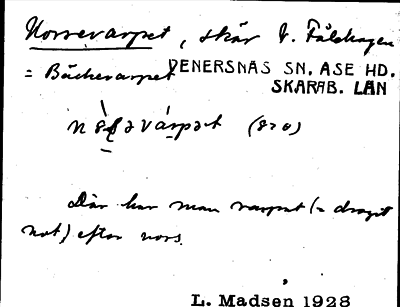 Norrevarpet, skär V. Fålehagen
= Bäckevarpet VENERSNÄS SN. ÅSE HD.
SKARAB. LÄN
(820)
Där har man varpat (= dragit
not) efter nors.
L. Madsen 1928